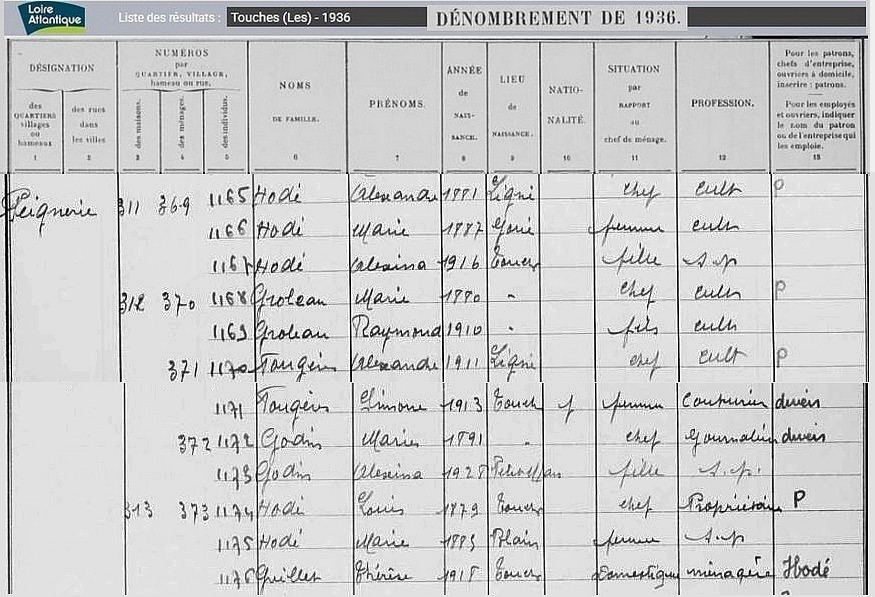 Loire Atlantique
Liste des résultats : Touches (Les) - 1936
DÉNOMBREMENT DE 1936.
DÉSIGNATION
des QUARTIERS villages ou hameaux
des rues dans les villes
NUMÉROS par QUARTIER, VILLAGE, hameau ou rue.
des maisons.
des ménages.
des individus.
NOMS DE FAMILLE.
PRÉNOMS.
ANNÉE de NAISSANCE.
LIEU de NAISSANCE.
NATIO-NALITÉ.
SITUATION par RAPPORT au chef de ménage.
PROFESSION.
Pour les patrons, chefs d'entreprise, ouvriers à domicile, inscrire : patrons.
Pour les employés et ouvriers, indiquer le nom du patron ou de l'entreprise qui les emploie.
1 2 3 4 5 6 7 8 9 10 11 12 13
311 369 1165 Hodé Alexandre 1881 Ligné chef cult P
1166 Hodé Marie 1887 femme cult
1167 Hodé Alexina 1916 Touch fille s.p
312 370 1168 Groleau Marie 1880 " chef cult P
1169 Groleau Raymond 1910 " fils cult
371 1170 Fougères Alexandre 1911 Ligné chef cult P
1171 Fougères Simone 1913 Touch f femme Couturière divers
372 1172 Godin Marie 1891 " chef Journalier divers
1173 Godin Alexina 1928 fille s.p.
313 373 1174 Hodé Louis 1879 Touch chef Propriétaire P
1175 Hodé Marie 1885 Blain femme s.p
1176 Guillet Thérèse 1918 Touch Domestique ménagère Hodé